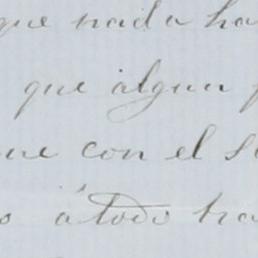 que nada ha
que algun
me con el s
o á todo ha